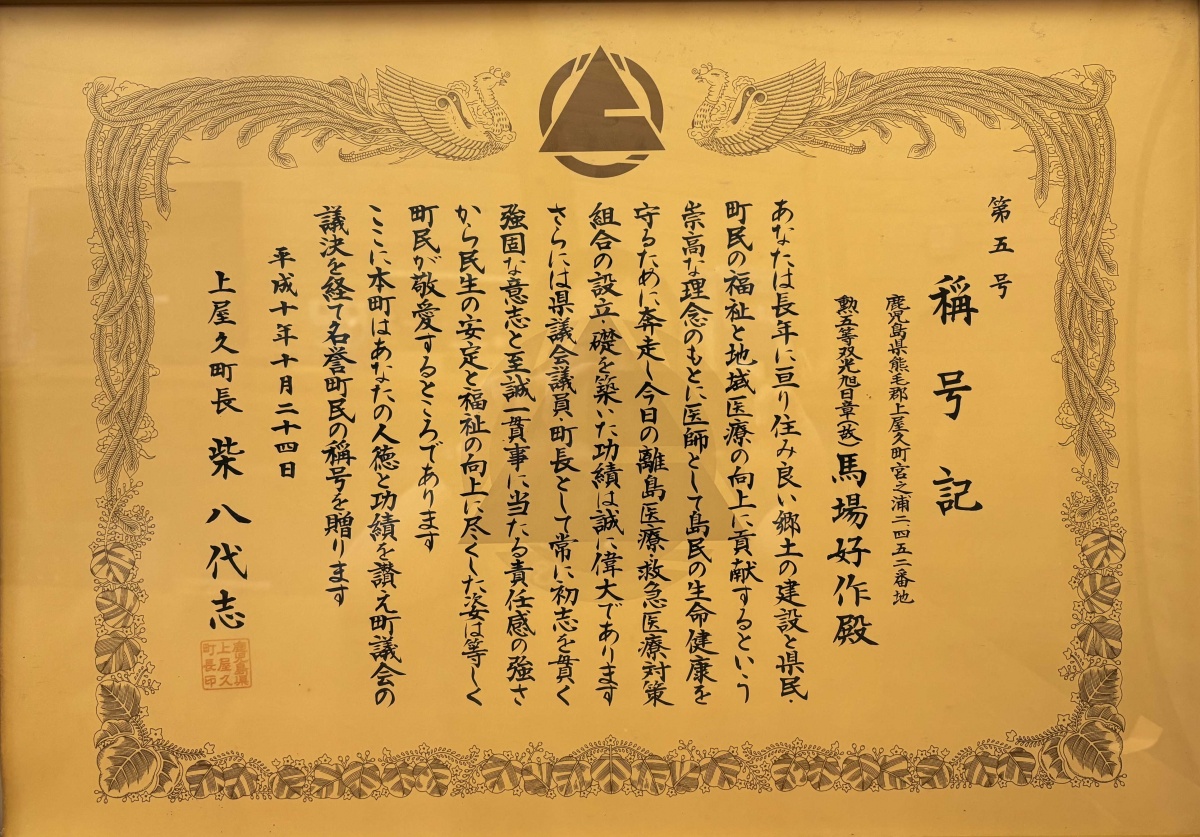 第五号
稱号記
鹿児島県熊毛郡上屋久町宮之浦二四五二番地
勲五等双光旭日章(故)馬場好作殿
あなたは長年に亘り住み良い郷土の建設と県民・
町民の福祉と地域医療の向上に貢献するという
崇高な理念のもとに医師として島民の生命健康を
守るために奔走し今日の離島医療・救急医療対策
組合の設立・礎を築いた功績は誠に偉大であります
さらには県議会議員・町長として常に初志を貫く
強固な意志と至誠一貫事に当たる責任感の強さ
から民生の安定と福祉の向上に尽くした姿は等しく
町民が敬愛するところであります
ここに本町はあなたの人徳と功績を讃え町議会の
議決を経て名誉町民の稱号を贈ります
平成十年十月二十四日
上屋久町長 柴八代志
鹿児島県
上屋久
町長印